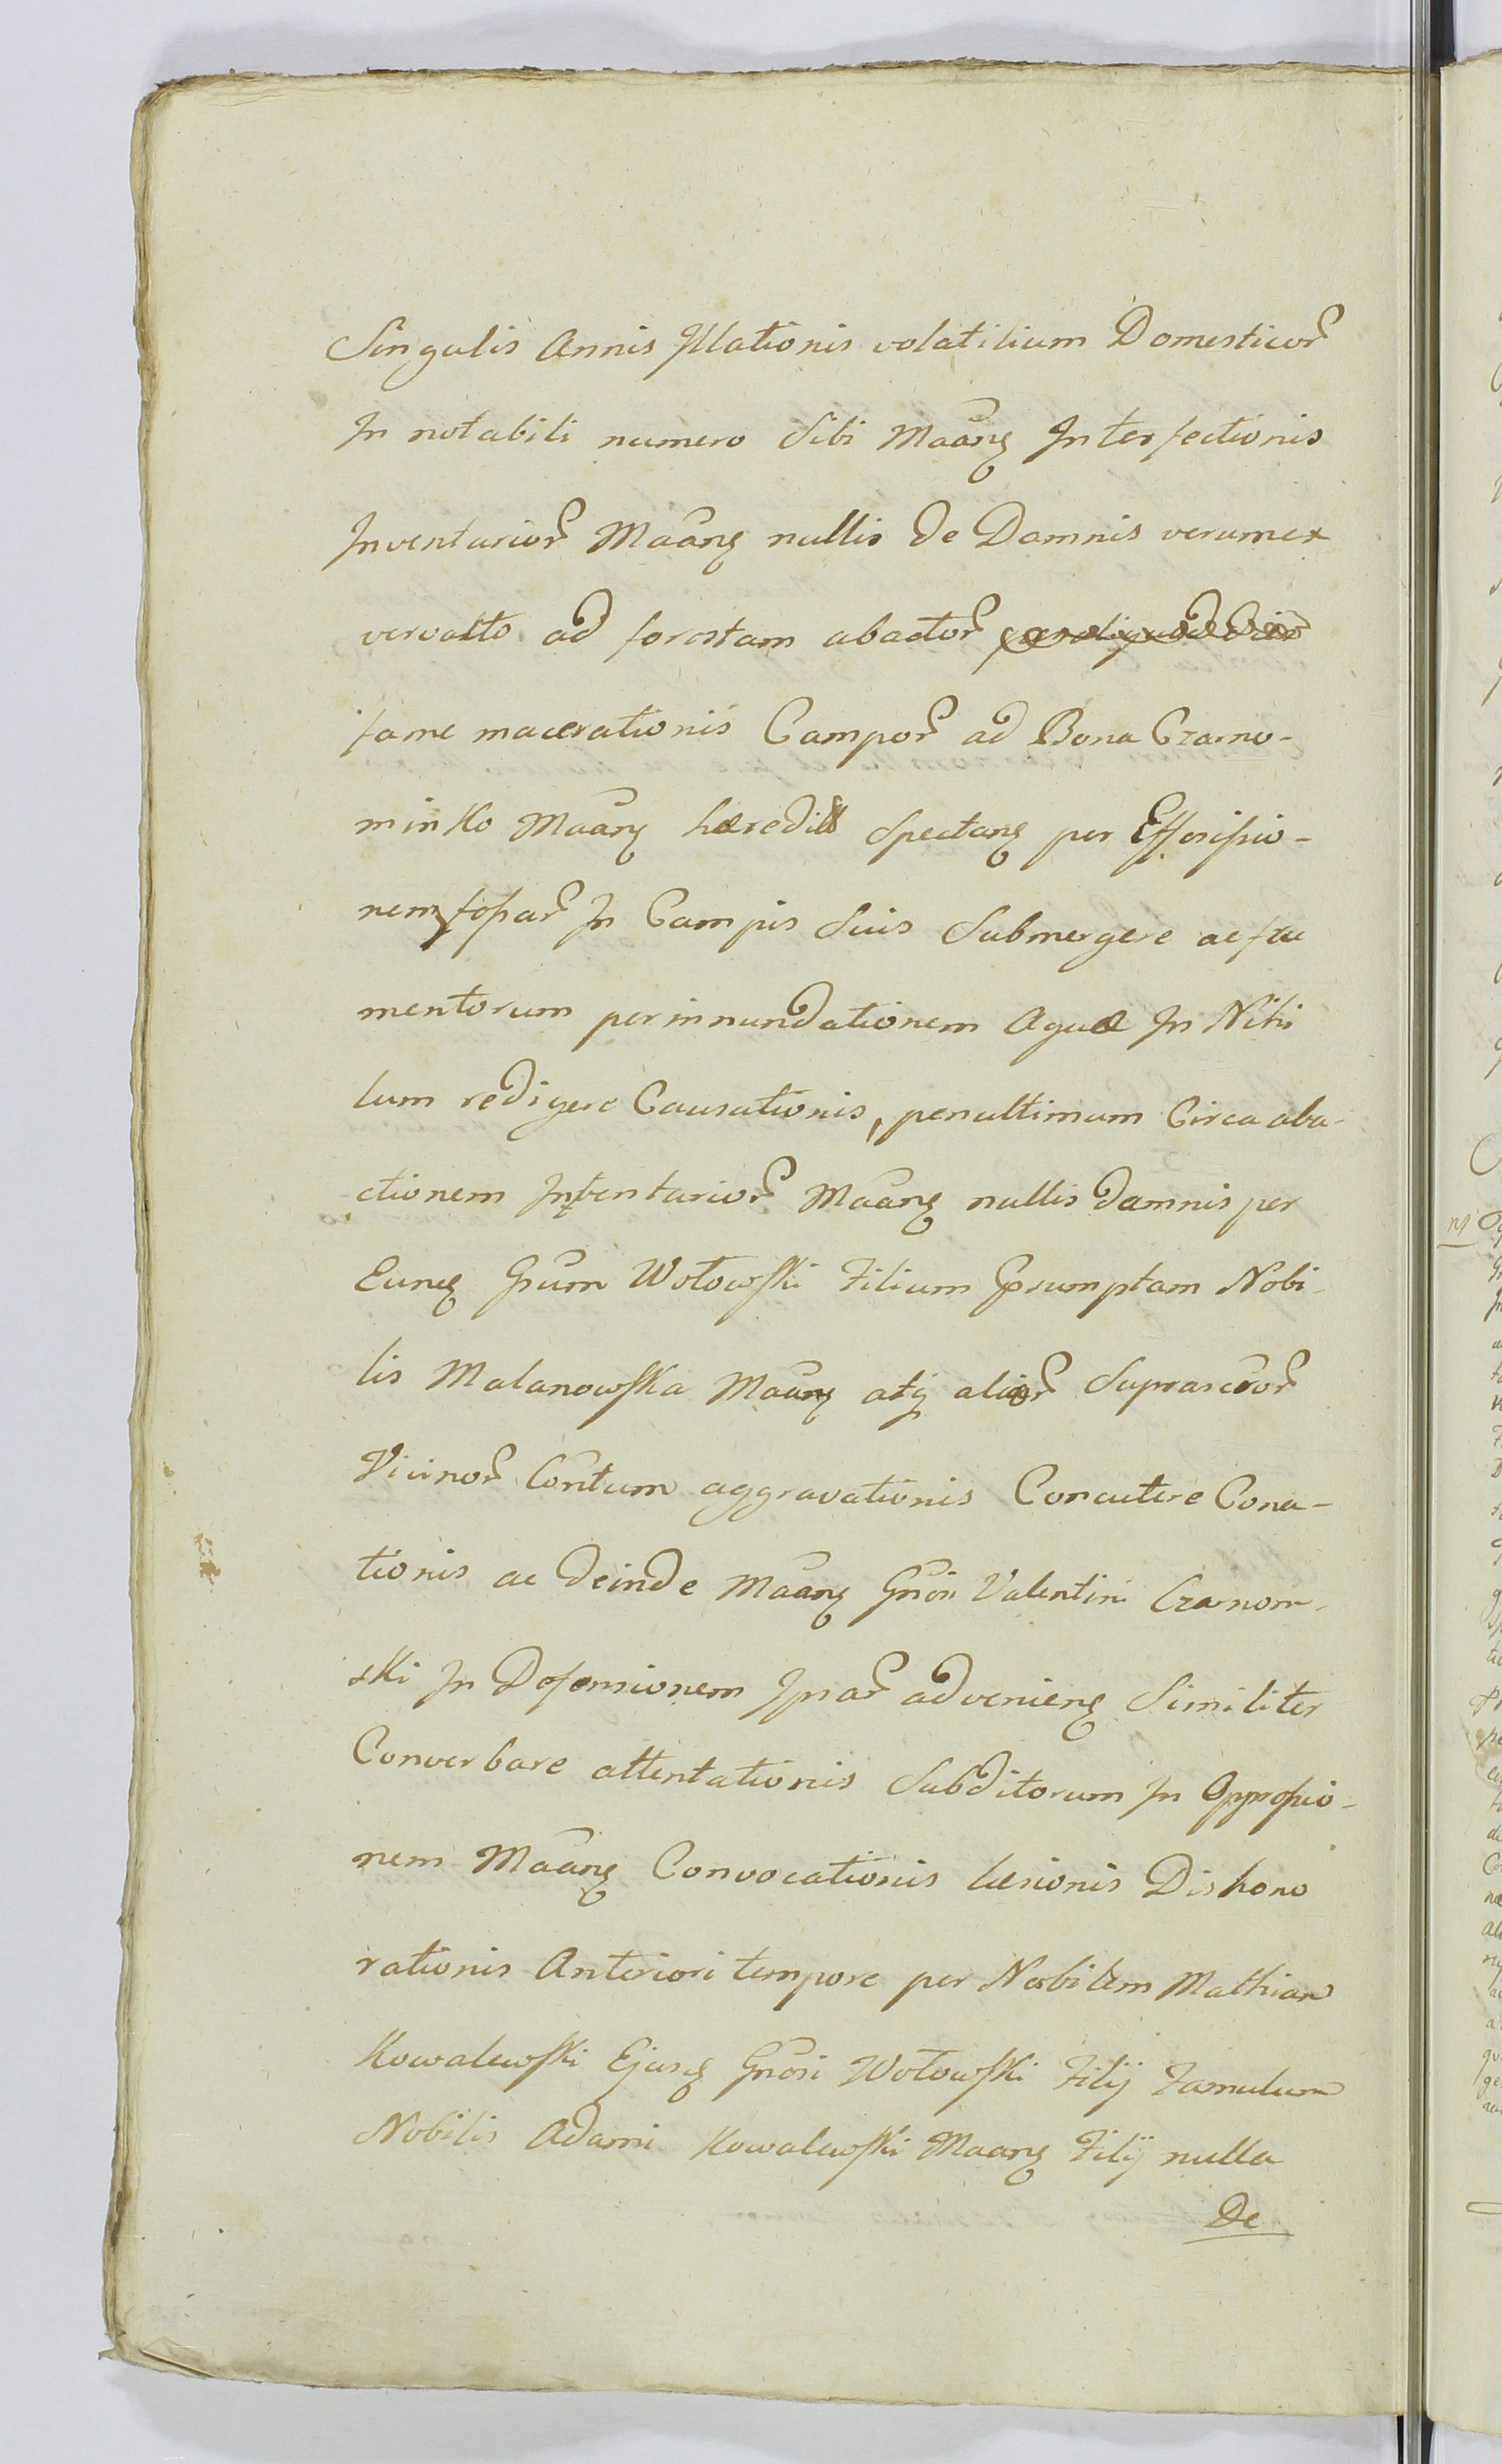 Singulis Annis Illationis volatilium Domesticor
In notabili numero Sibi Maang Interfectionis
Inventarior Maang nullis de Damnis verumex
vervacto ad forestam abactor
fame macerationis Campor ad Bona Czarno-
minko Maang hæredit Spectang per Efforssio-
nem fossar In Campis Suis Submergere ac fru
mentorum per innundationem Aquæ In Nihi
lum redigere Causationis, penultimum Circa aba-
ctionem Inventarior Maang nullis damnis per
Eunq Gnum Wołowski Filium Præsumptam Nobi-
lis Malanowska Maang atq alior Suprascror
Vicinor Contum aggravationis Concutere Cona-
tionis ac deinde Maang Gnosi Valentini Czarnom-
ski In Defensionem Ipsar advenieng Similiter
Converbare attentationis Subditorum In Oppressio-
nem Maang Convocationis læsionis Dishono
rationis Anteriori tempore per Nobilem Mathiam
Kowalewski Ejusq Gnosi Wołowski Filij Famulum
Nobilis Adami Kowalewski Maang Filij nulla
De